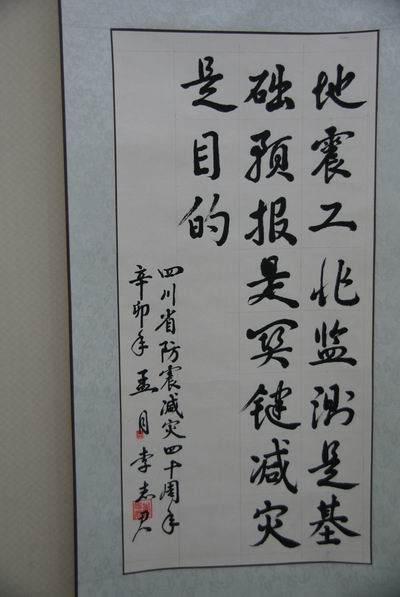 地震工作监测是基
础预报是关键减灾
是目的
四川省防震减灾四十周年
辛卯年孟月李志